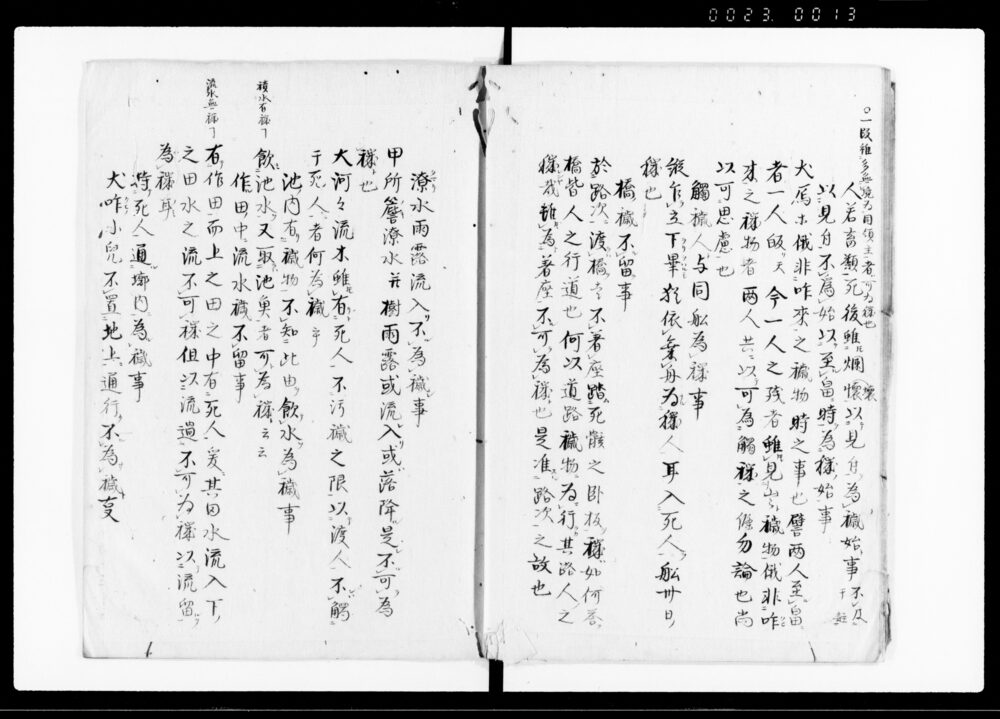 0023.0013
人若畜類死後雖爛壊以見付為穢始事
以見付不為始以至畠時為穢始事
犬烏出俄非咋来之穢物時之事也譬両人至畠
者一人皈夭今一人之残者雖見出穢物俄非咋
来之穢物者両人共以可為觸穢之條勿論也尚
以可思慮也
觸穢人与同舩為穢事
縦乍立下畢於依乗舟為穢人耳入死人舩卅日
穢也
橋穢不留事
於路次渡橋之不著座踏死骸之卧板穢如何答
橋皆人之行道也何以道路穢物為行其路人之
穢哉雖為著座不可為穢也是准路次之故也
潦水雨露流入不為穢事
甲所簷潦水并樹雨露或流入或落降是不可為
穢也
大河々流水雖有死人不污穢之限以渡人不觸
于死人者何為穢乎
池内有穢物不知此由飲水為穢事
積水有穢了
飲池水又取池魚者可為穢云云
作田中流水穢不留事
流水無穢了
有作田而上之田之中有死人爰其田水流入下
之田水之流不可穢但以流過不可為穢以流留
為穢耳
将死人通墎内為穢事
犬咋小兒不置地上通行不為穢事